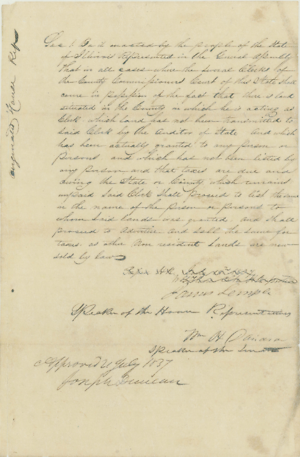 Sec 1 Be it enacted by the people of the State
of Illinois represented in the General Assembly
That in all cases where the several Clerks of
the County Commissioners Court of this State shall
come in possession of the fact that there is land
situated in the County in which he is acting as
Clerk which land has not been transmitted to
said Clerk by the Auditor of State and which
has been actually granted to any person or
persons and which had not been listed by
any person and that taxes are due and
owing the State or County which remains
unpaid Said Clerk shall proceed to list the same
in the name of the person or persons to
whom said lands was granted and shall
proceed to advertise and sell the same for
taxes as other Non resident Lands are now
sold by law
James Semple
Speaker of the House Representatives
Wm H Davidson
Speaker of the Senate
Approved 21 July 1837
Joseph Duncan